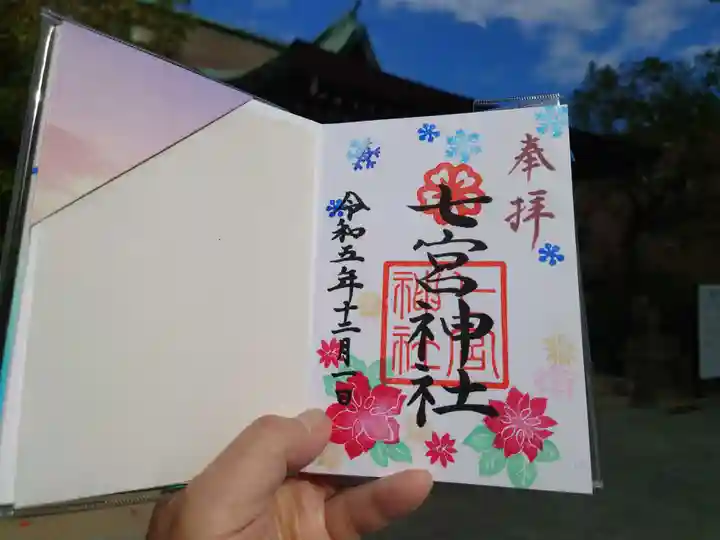 奉拝
七宮神社
七宮
神社
令和五年十二月一日